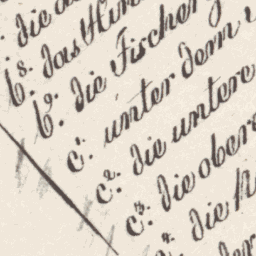 die
b⁸. das
b⁹. die Fischer
c¹. unter dem
c². die untere
c³. die obere
die